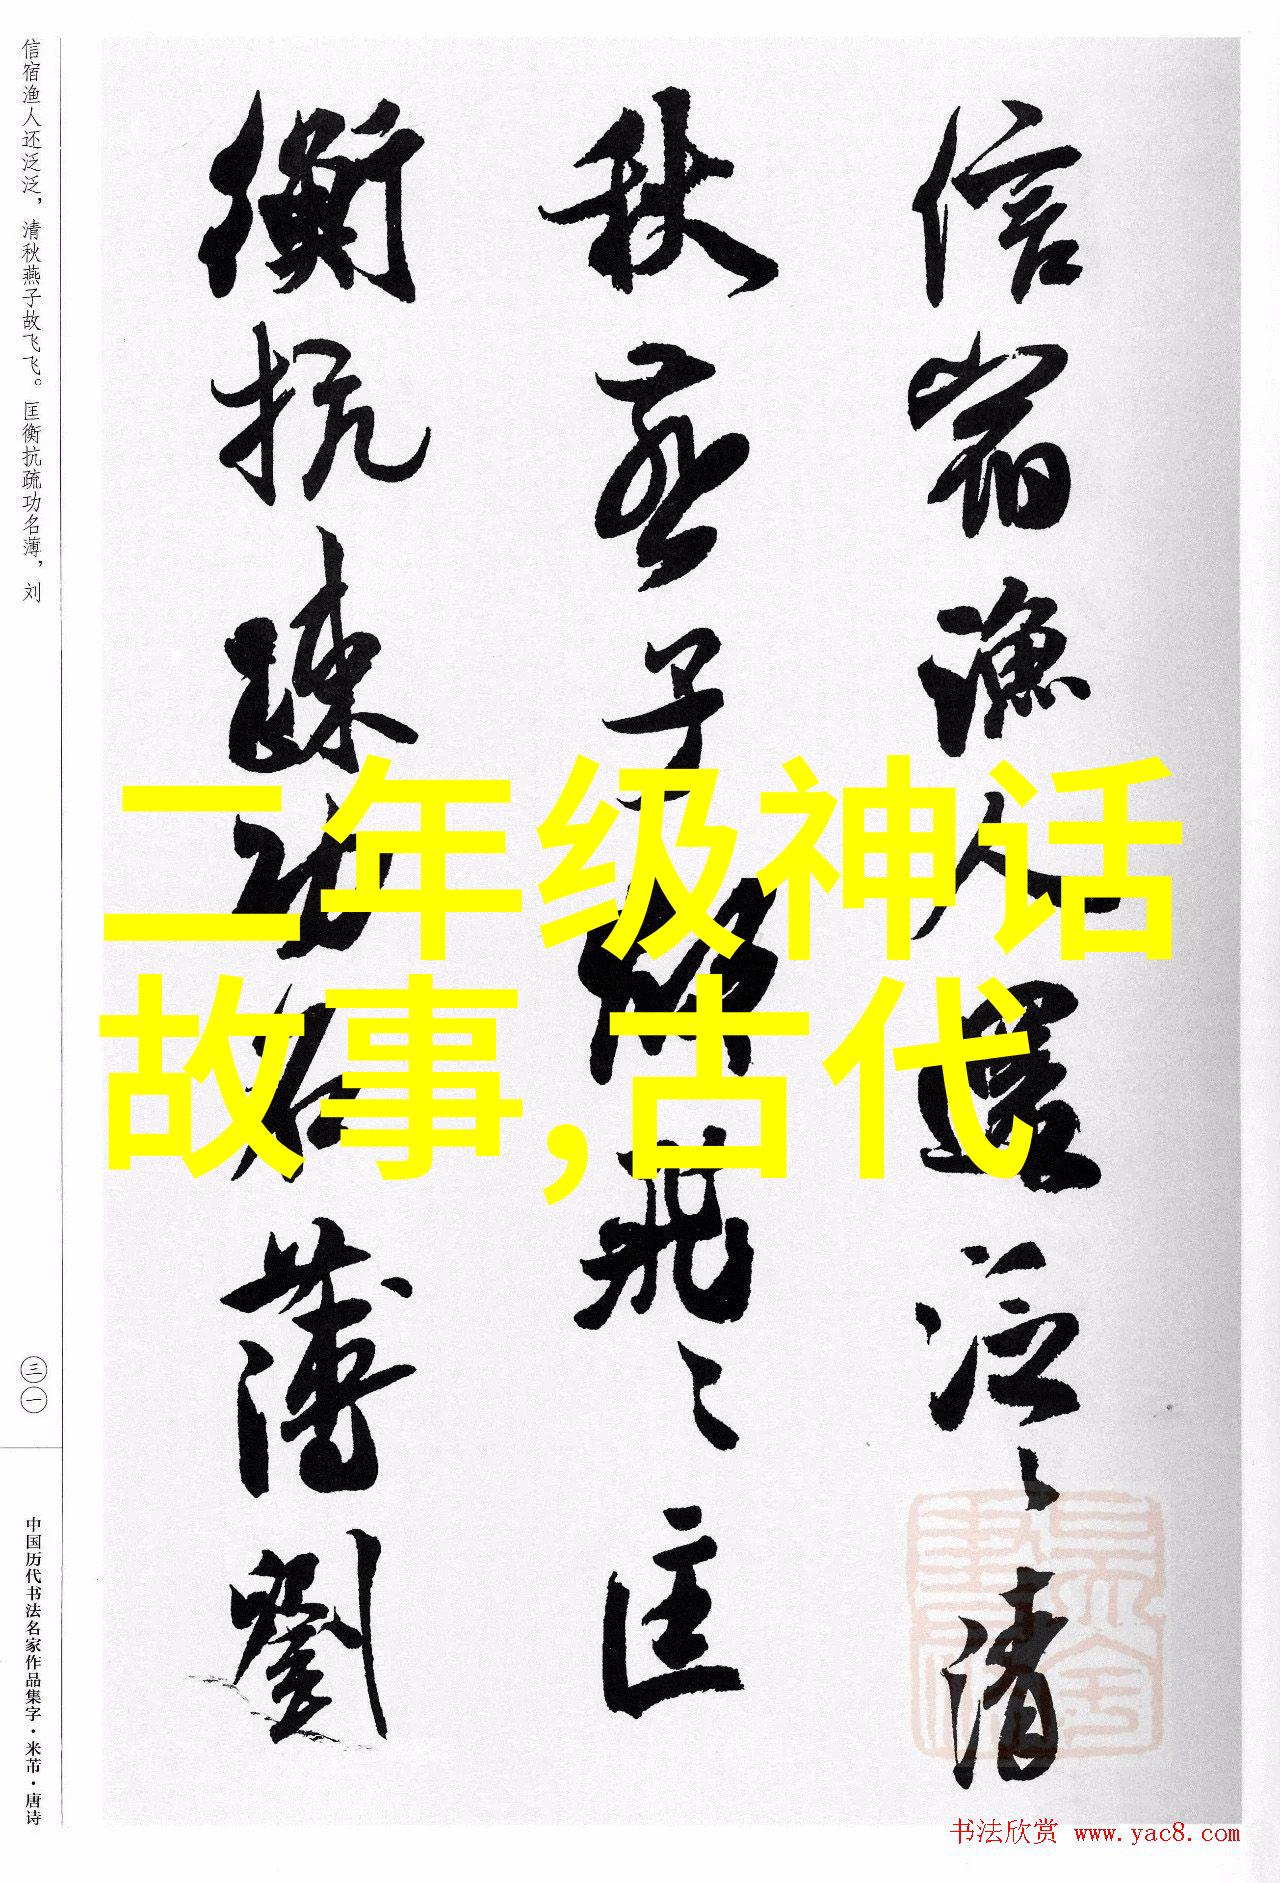 信宿渔人还泛泛，清秋燕子故飞飞。匡衡抗疏功名薄，刘
三一
中国历代书法名家作品集字·米芾·唐诗
信宿漁人還泛〻清
秋燕子故飛〻匡
衡抗疏功名薄劉
二年级神话
故事,古代
书法欣赏 www.yac8.com